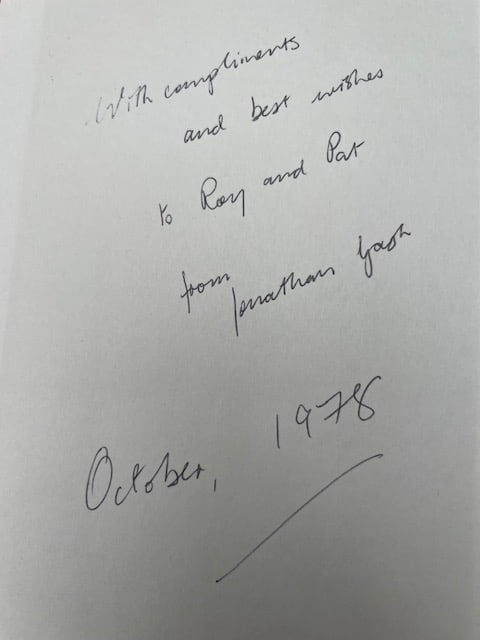 With compliments
and best wishes
to Roy and Pat
from
Jonathan Gash
October, 1978